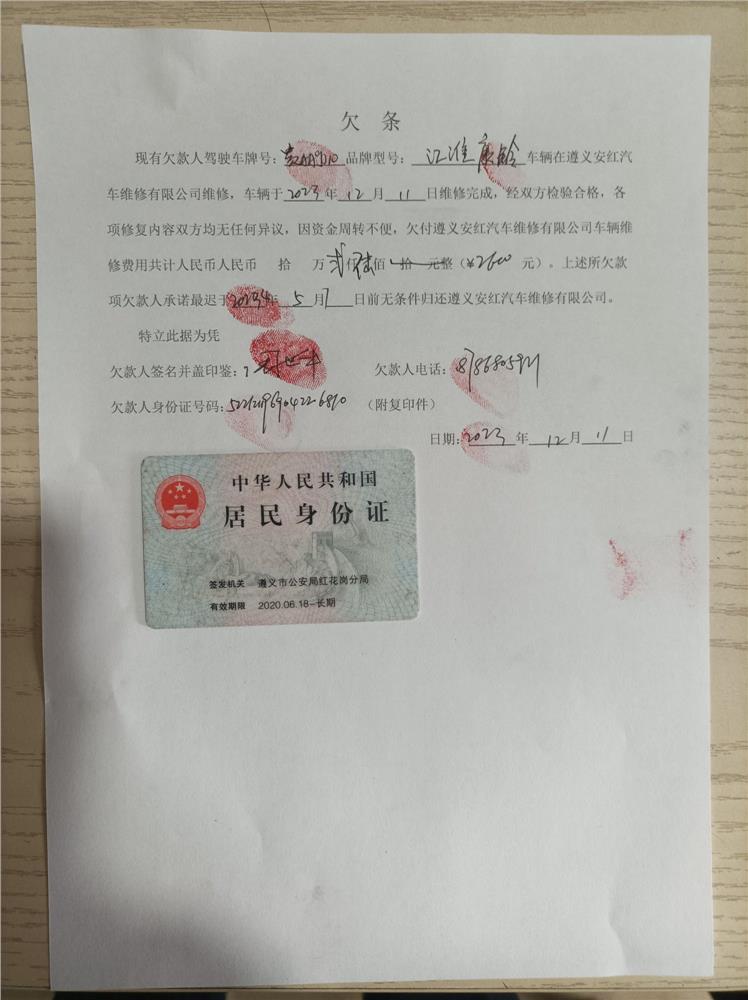 欠 条
现有欠款人驾驶车牌号：品牌型号：江淮康铃车辆在遵义安红汽
车维修有限公司维修，车辆于2023年12月11日维修完成，经双方检验合格，各
项修复内容双方均无任何异议，因资金周转不便，欠付遵义安红汽车维修有限公司车辆维
修费用共计人民币人民币 拾 万贰仟陆佰 拾 元整（¥2600 元）。上述所欠款
项欠款人承诺最迟于年5月7日前无条件归还遵义安红汽车维修有限公司。
特立此据为凭
欠款人签名并盖印鉴： 欠款人电话：
欠款人身份证号码： （附复印件）
日期：2023年12月11日
中华人民共和国
居民身份证
签发机关 遵义市公安局红花岗分局
有效期限 2020.06.18-长期